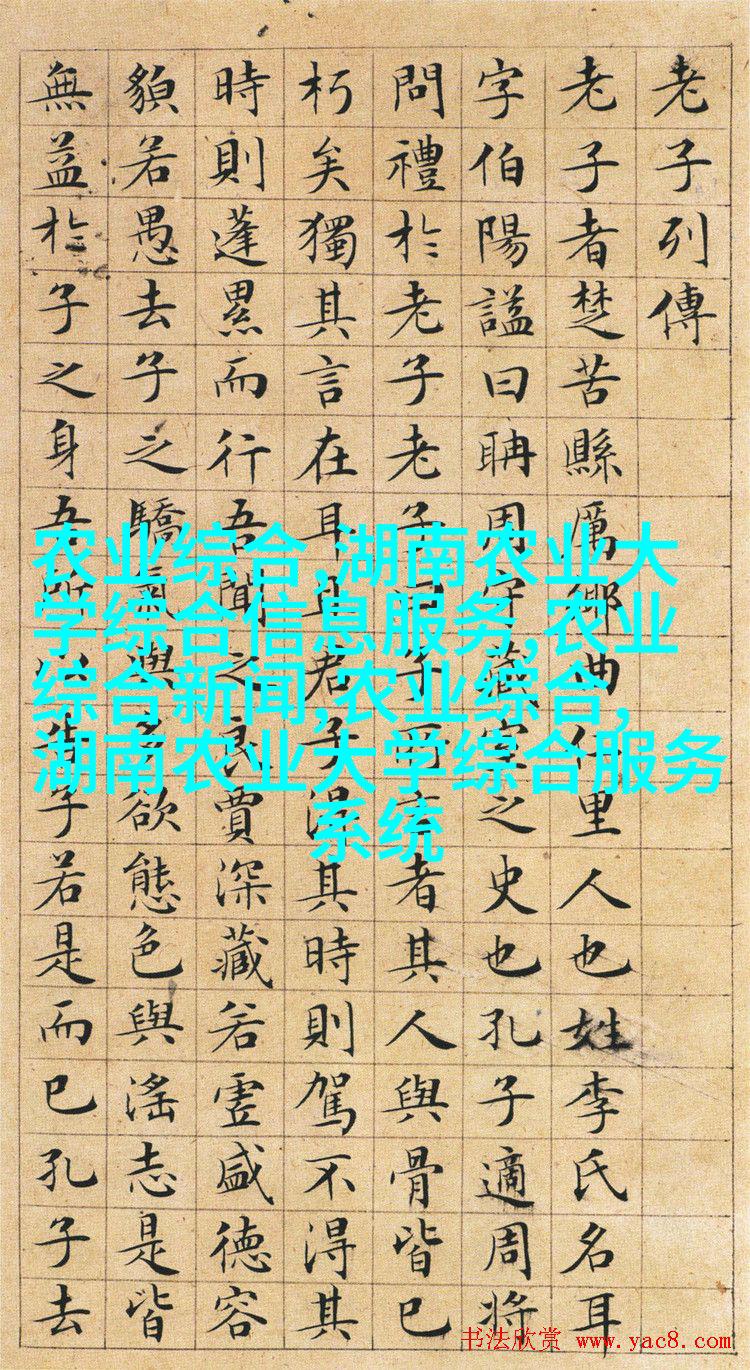 老子列傳
老子者楚苦縣厲鄉曲仁里人也姓李氏名耳
字伯陽諡曰耼周守藏室之史也孔子適周將
問禮於老子老子曰子所言者其人與骨皆已
朽矣獨其言在耳且君子得其時則駕不得其
時則蓬累而行吾聞之良賈深藏若虛盛德容
貌若愚去子之驕氣與多欲態色與滛志是皆
無益於子之身吾所以告子若是而已孔子去
农业综合,湖南农业大
学综合信息服务,农业
综合新闻,农业综合,
湖南农业大学综合服务
系统
书法欣赏 www.yac8.com